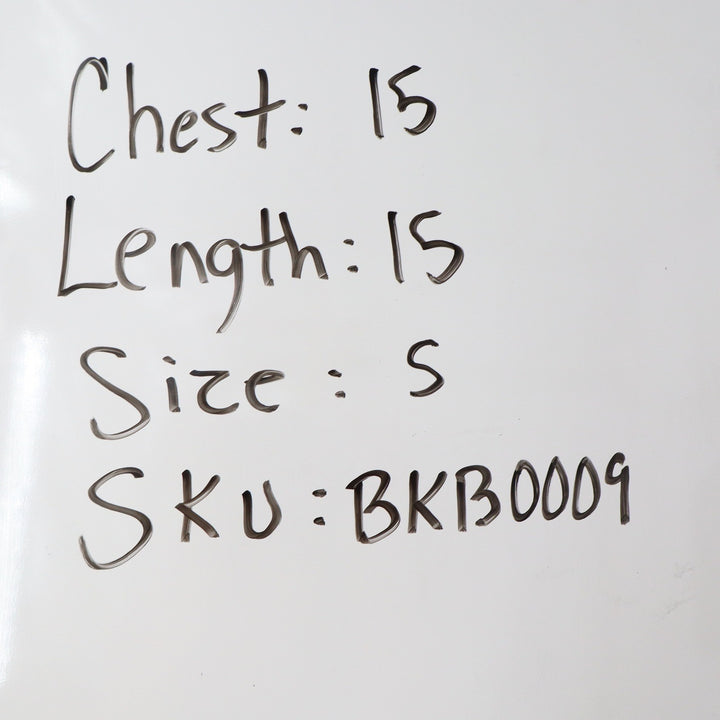 Chest: 15
Length: 15
Size: S
SKU: BKB0009